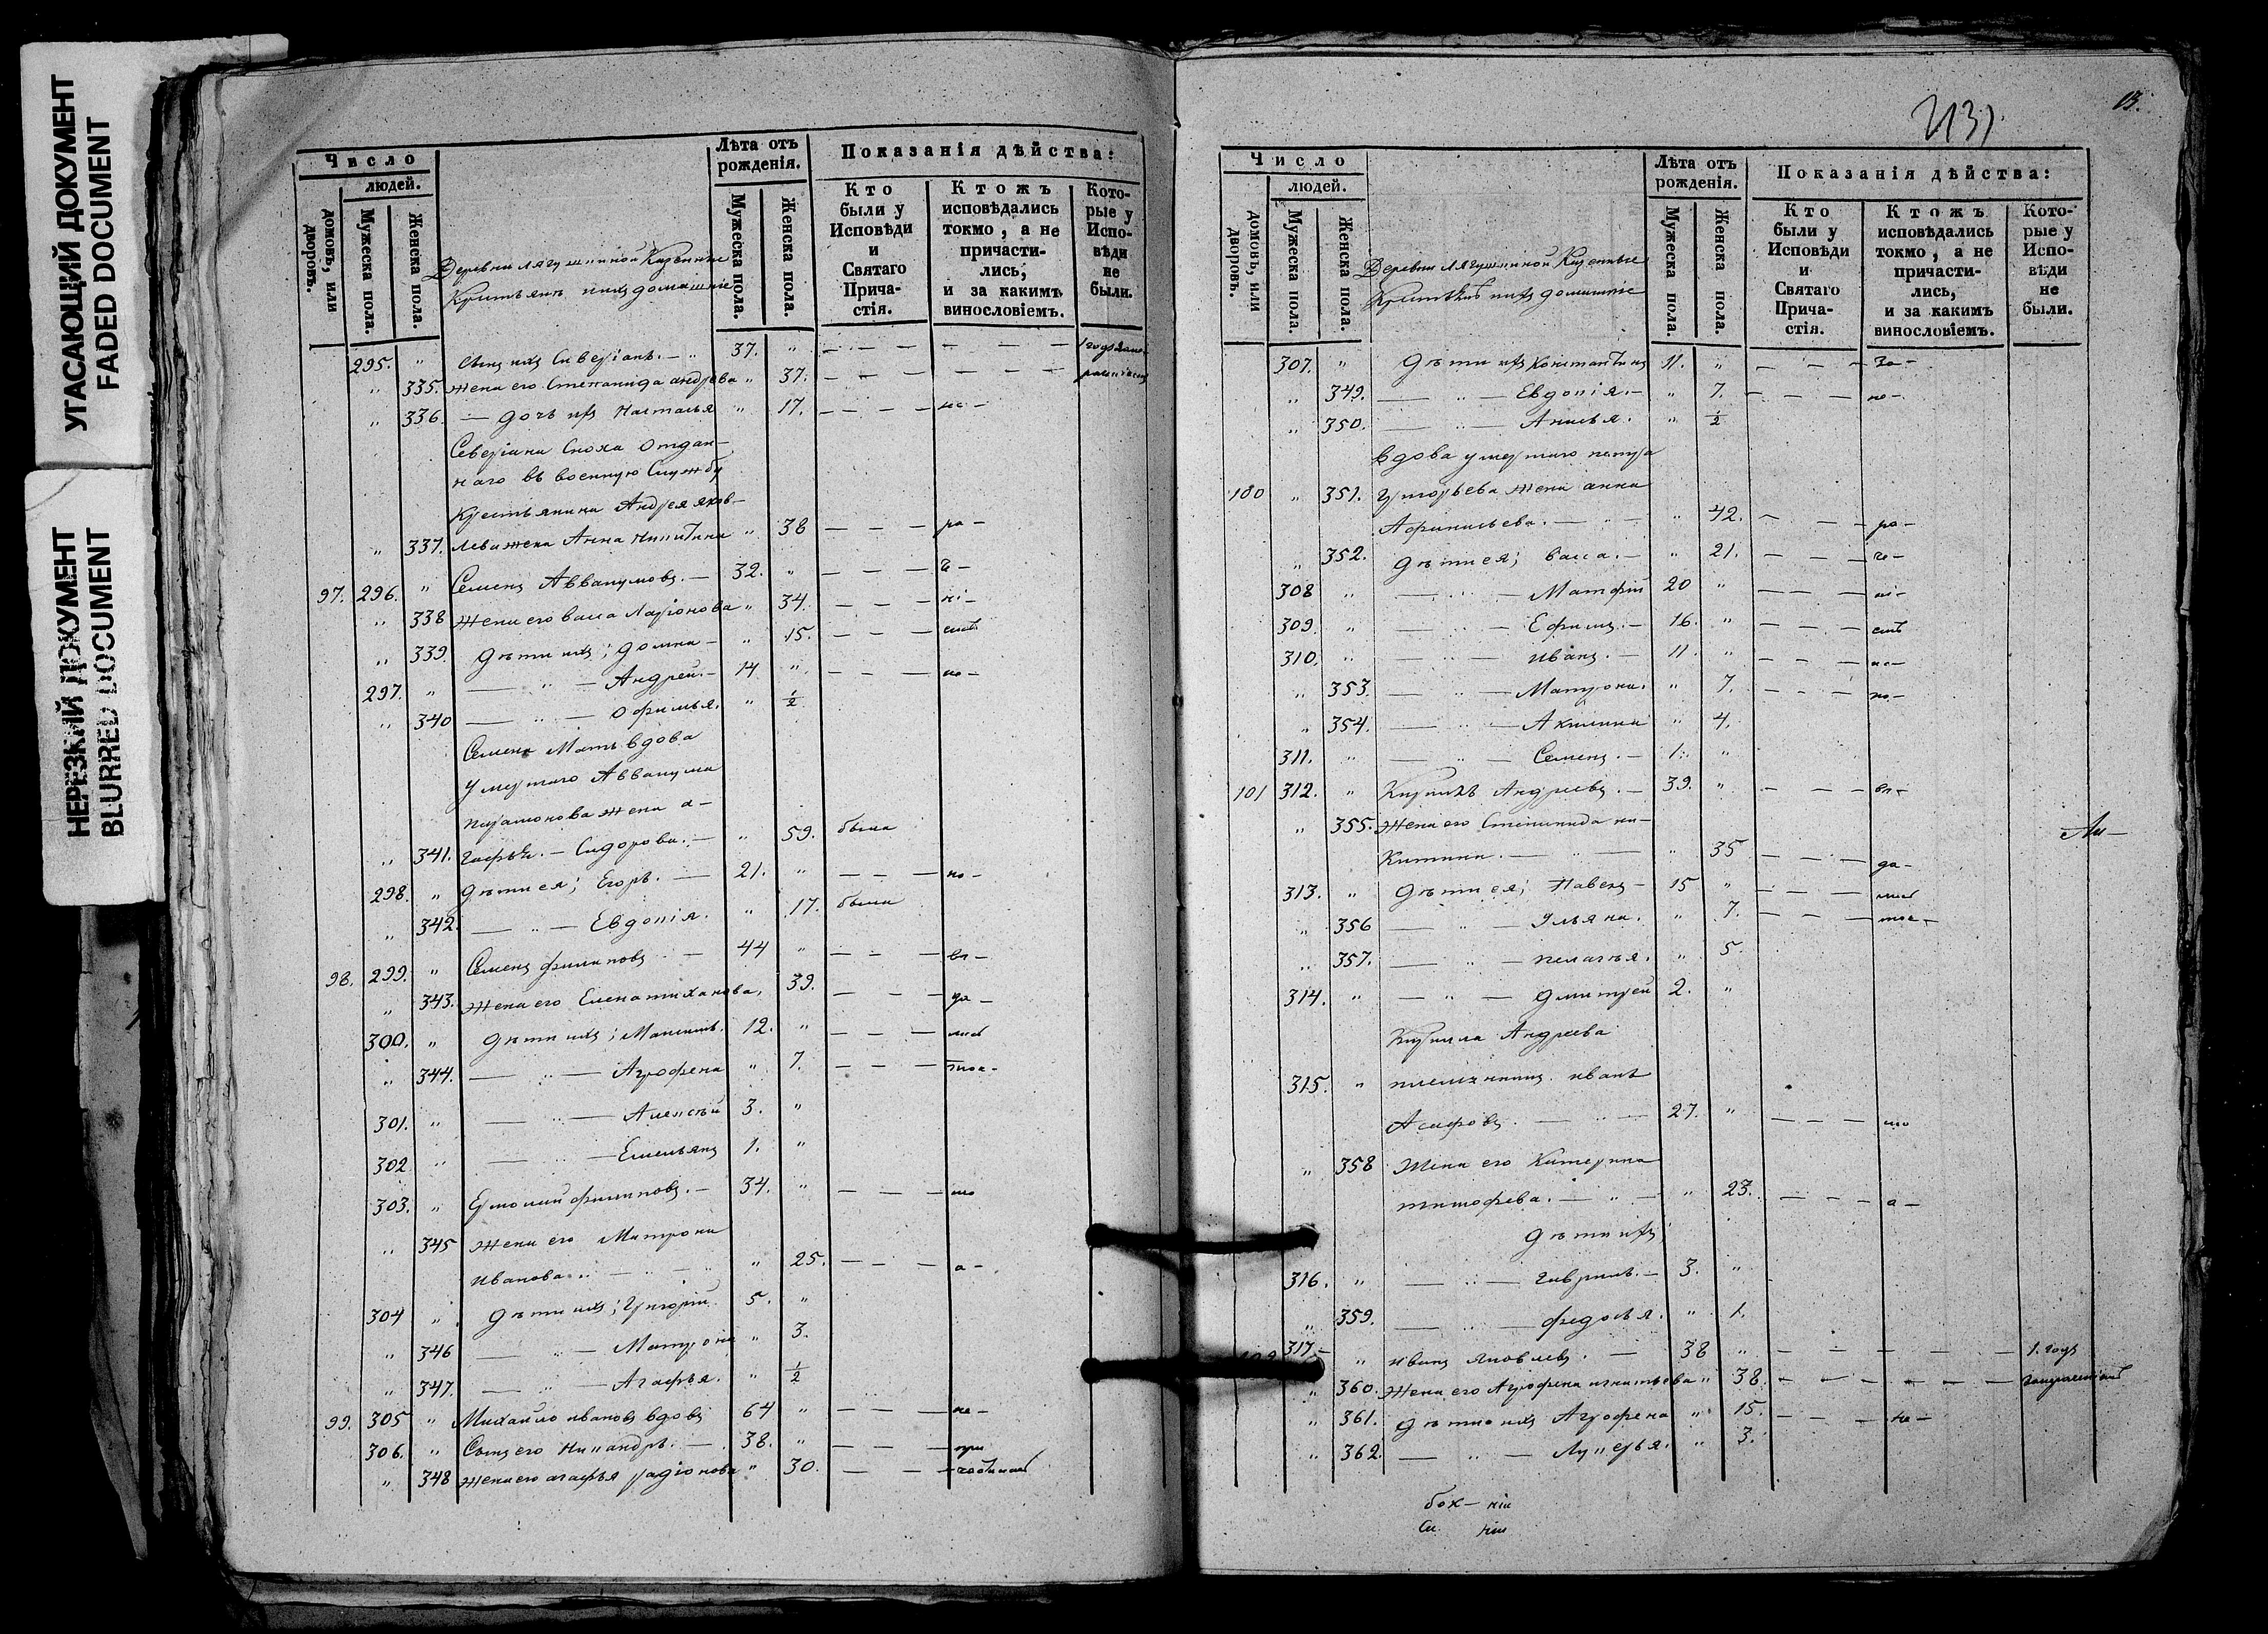 УГАСАЮЩИЙ ДОКУМЕНТ
FADED DOCUMENT
НЕРЕЗКИЙ ДОКУМЕНТ
BLURRED DOCUMENT
Число
людей.
домовъ, или дворовъ.
Мужеска пола.
Женска пола.
Деревни Лягушиной Казенные
Крестьяне и ихъ домашніе
Лѣта отъ рожденія.
Мужеска пола.
Женска пола.
Показанія дѣйства:
Кто были у Исповѣди и Святаго Причастія.
Ктожъ исповѣдались токмо, а не причастились, и за какимъ винословіемъ.
Которые у Исповѣди не были.
295. " Сынъ ихъ Северіанъ. — " 37. "
" 335. Жена его Степанида андреева " 37.
" 336 — дочь ихъ Наталья " 17. — — — — не —
Северіана Сноха Отдан-
наго въ военную Службу
Крестьянина Андрея яков-
" 337. лева жена Анна Никитина " 38 — — — ра —
97. 296. " Семенъ Аввакумовъ. — 32. " — — —
" 338 Жена его васса Ларіонова " 34. — — — ні —
" 339. дѣти ихъ; домна — " 15. — — —
297. " — " — Андрей. — 14 " — — — по —
" 340 — " — Офимья. " ½
Семена Мать вдова
умершаго Аввакума
парамонова жена а-
" 341. гафья. — Сидорова. — " 59. была
298. " дѣти ея; Егоръ. — 21. " — — — по —
" 342. — " — Евдокія. " 17. была
98. 299. " Семенъ филиповъ — 44 " — — —
" 343. Жена его Елена тиханова, 39. — — —
300. " дѣти ихъ; Максимъ. 12. " — — —
" 344. — " — Агрофена " 7. — — —
301. " — " — Алексѣй 3. "
302 " — " — Емельянъ 1. "
303. " Ермолай филиповъ. — 34. " — — —
" 345 Жена его Матрона
Иванова. " — " — " " 25. — — — а —
304 " дѣти ихъ; Григорій 5. "
" 346 — " — Матрона " 3.
" 347. — " — Агафья. " ½
99. 305 " Михайло ивановъ вдовъ 64 " — — — не —
306. " Сынъ его Никандръ. — 38. " — — — при
" 348 Жена его агафья радіонова " 30. — — —
13.
2131
Число
людей.
домовъ, или дворовъ.
Мужеска пола.
Женска пола.
Деревни Лягушиной Казенные
Крестьяне и ихъ домашніе
Лѣта отъ рожденія.
Мужеска пола.
Женска пола.
Показанія дѣйства:
Кто были у Исповѣди и Святаго Причастія.
Ктожъ исповѣдались токмо, а не причастились, и за какимъ винословіемъ.
Которые у Исповѣди не были.
307. " дѣти ихъ Константинъ 11. " — — — За —
" 349. — " — Евдокія. — " 7. — — — не —
" 350. — " — Анисья. " ½
вдова умершаго петра
100 " 351. Григорьева жена анна
Афанасьева. — " — " 42. — — — ра —
" 352. дѣти ея; васса. — " 21. — — —
308 " — " — Матфій 20 " — — — ні —
309. " — " — Ефимъ. — 16. " — — —
310. " — " — иванъ. — 11. " — — — не —
" 353. — " — Матрона. " 7. — — — по —
" 354. — " — Акилина " 4.
311. " — " — Семенъ. — 1. "
101 312. " Кирилъ Андреевъ. — 39. " — — —
" 355. Жена его Степанида ни-
Китина. — " — " 35 — — — да —
Ли —
313. " Дѣти ея; Павелъ — 15 " — — —
" 356 — " — Ульяна. " 7. — — —
" 357. — " — пелагея. " 5.
314. " — " — Дмитрей 2. "
Кирилла Андреева
315. " племянникъ иванъ
Асафовъ. — " — 27. " — — — по
" 358 Жена его Катерина
тимофеева. — " — " 23. — — — а —
дѣти ихъ
316. " — " — гаврилъ. — 3. "
" 359. — " — федосья. " 1.
102 317 — " иванъ яковлевъ. — 38 " — — — — — 1. годъ
" 360. Жена его Агрофена игнатьева " 38. — — — — —
" 361. дѣти ихъ Агрофена " 15. — — — не —
" 362. — " — Лукерья. " 3.